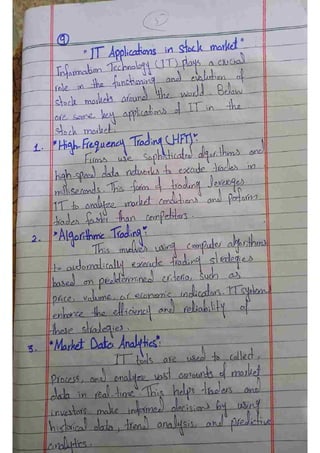 5
9
"IT Applications in Stock market"
Information Technology (IT) plays a crucial
role in the functioning and evolution of
stock markets around the world. Below
are some key applications of IT in the
stock market:
1. "High-Frequency Trading (HFT)":
Firms use sophisticated algorithms and
high-speed data networks to execute trades in
milliseconds. This form of trading leverages
IT to analyze market conditions and perform
trades faster than competitors.
2. "Algorithmic Trading":
This involves using computer algorithms
to automatically execute trading strategies
based on predetermined criteria, such as
price, volume, or economic indicators. IT systems
enhance the efficiency and reliability of
these strategies.
3. "Market Data Analytics":
IT tools are used to collect,
process, and analyze vast amounts of market
data in real-time. This helps traders and
investors make informed decisions by using
historical data, trend analysis, and predictive
analytics.